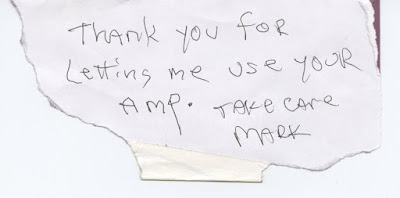 THANK YOU FOR
LeTTing me use YOUR
AMP. TAKE CARE
MARK